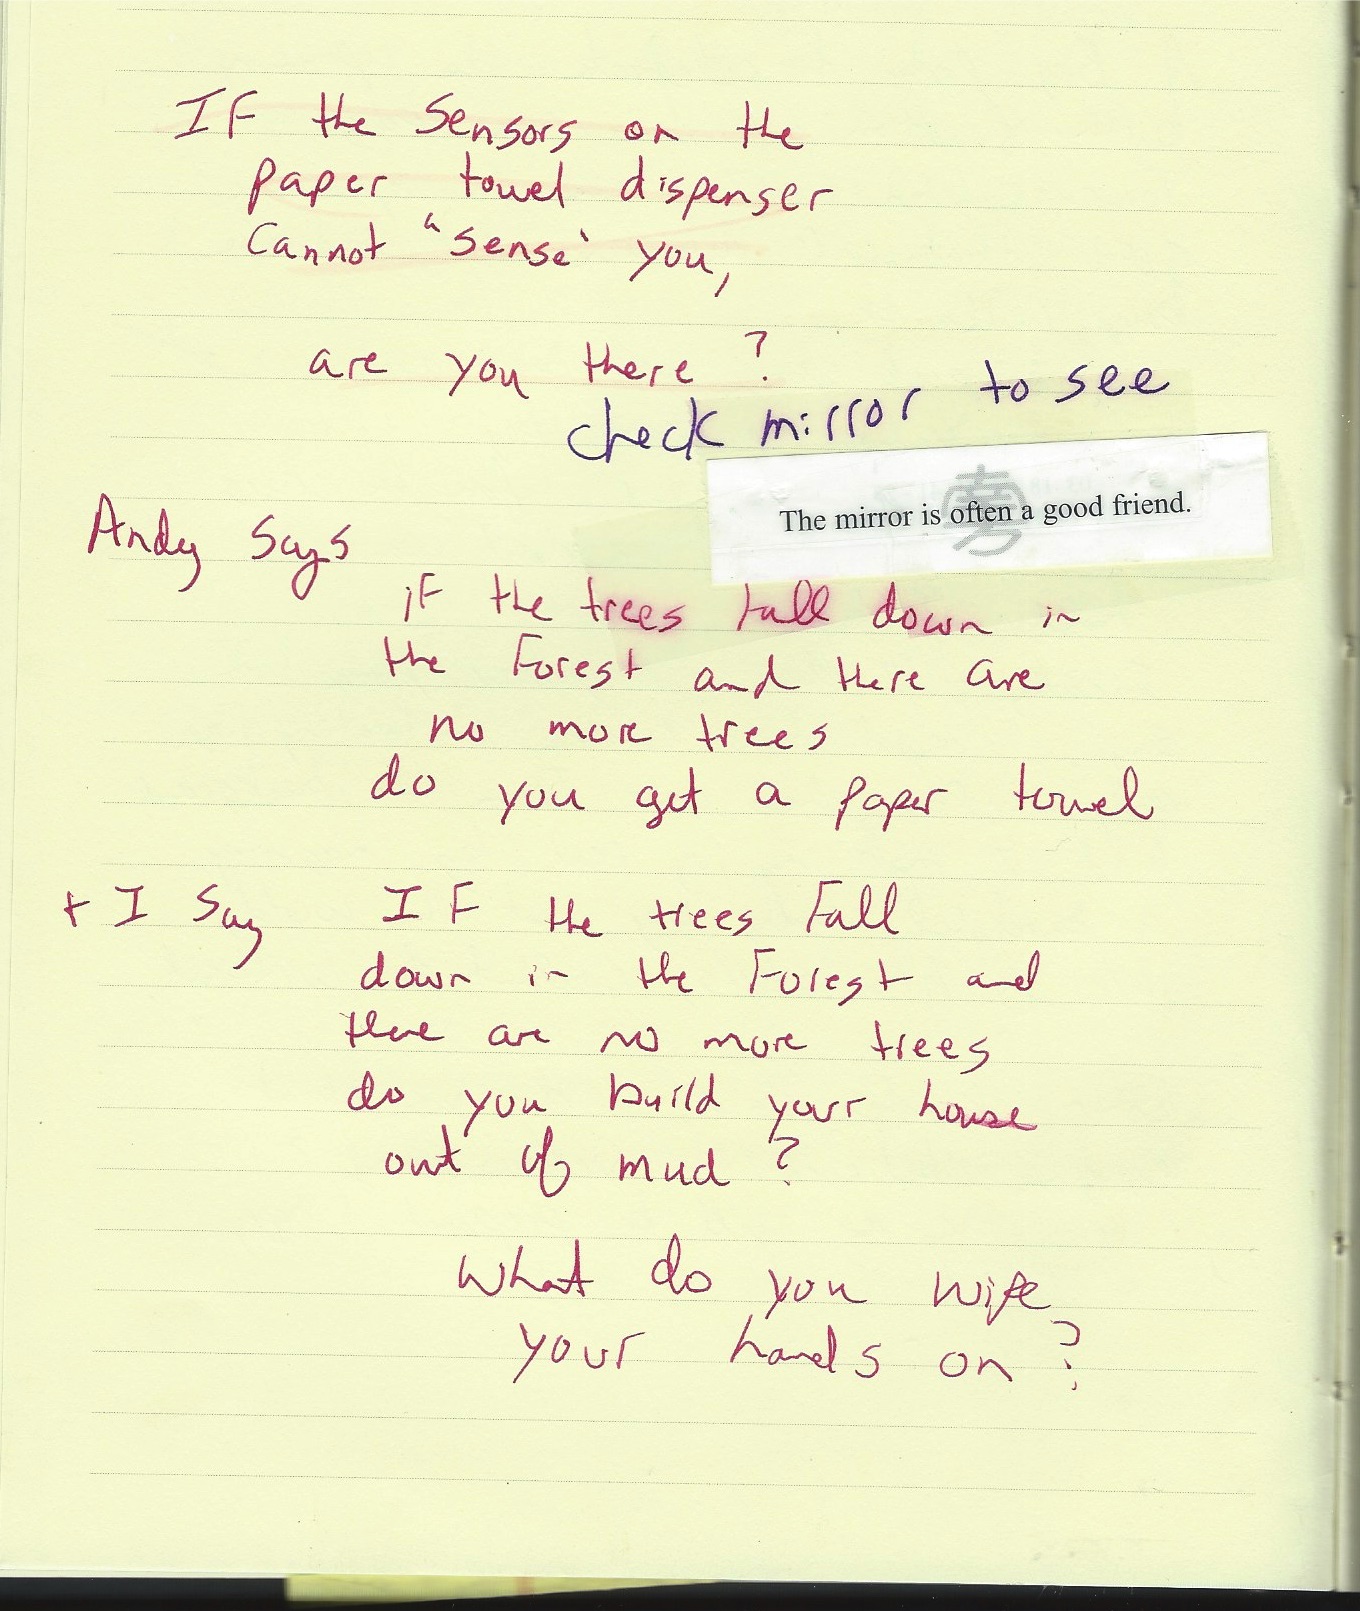 IF the Sensors on the
paper towel dispenser
Cannot "sense" you,
are you there?
check mirror to see
The mirror is often a good friend.
Andy Says
if the trees fall down in
the Forest and there are
no more trees
do you get a paper towel
+ I Say IF the trees Fall
down in the Forest and
there are no more trees
do you build your house
out of mud?
What do you wipe
your hands on?